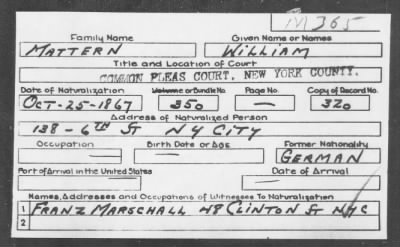 M365
Family Name Given Name or Names
MATTERN WILLIAM
Title and Location of Court
COMMON PLEAS COURT, NEW YORK COUNTY.
Date of Naturalization Volume or Bundle No. Page No. Copy of Record No.
OCT-25-1867 350 — 320
Address of Naturalized Person
138 - 6TH ST NY CITY
Occupation Birth Date or Age Former Nationality
— — GERMAN
Port of Arrival in the United States Date of Arrival
— —
Names, Addresses and Occupations of Witnesses To Naturalization
1 FRANZ MARSCHALL 48 CLINTON ST NYC
2